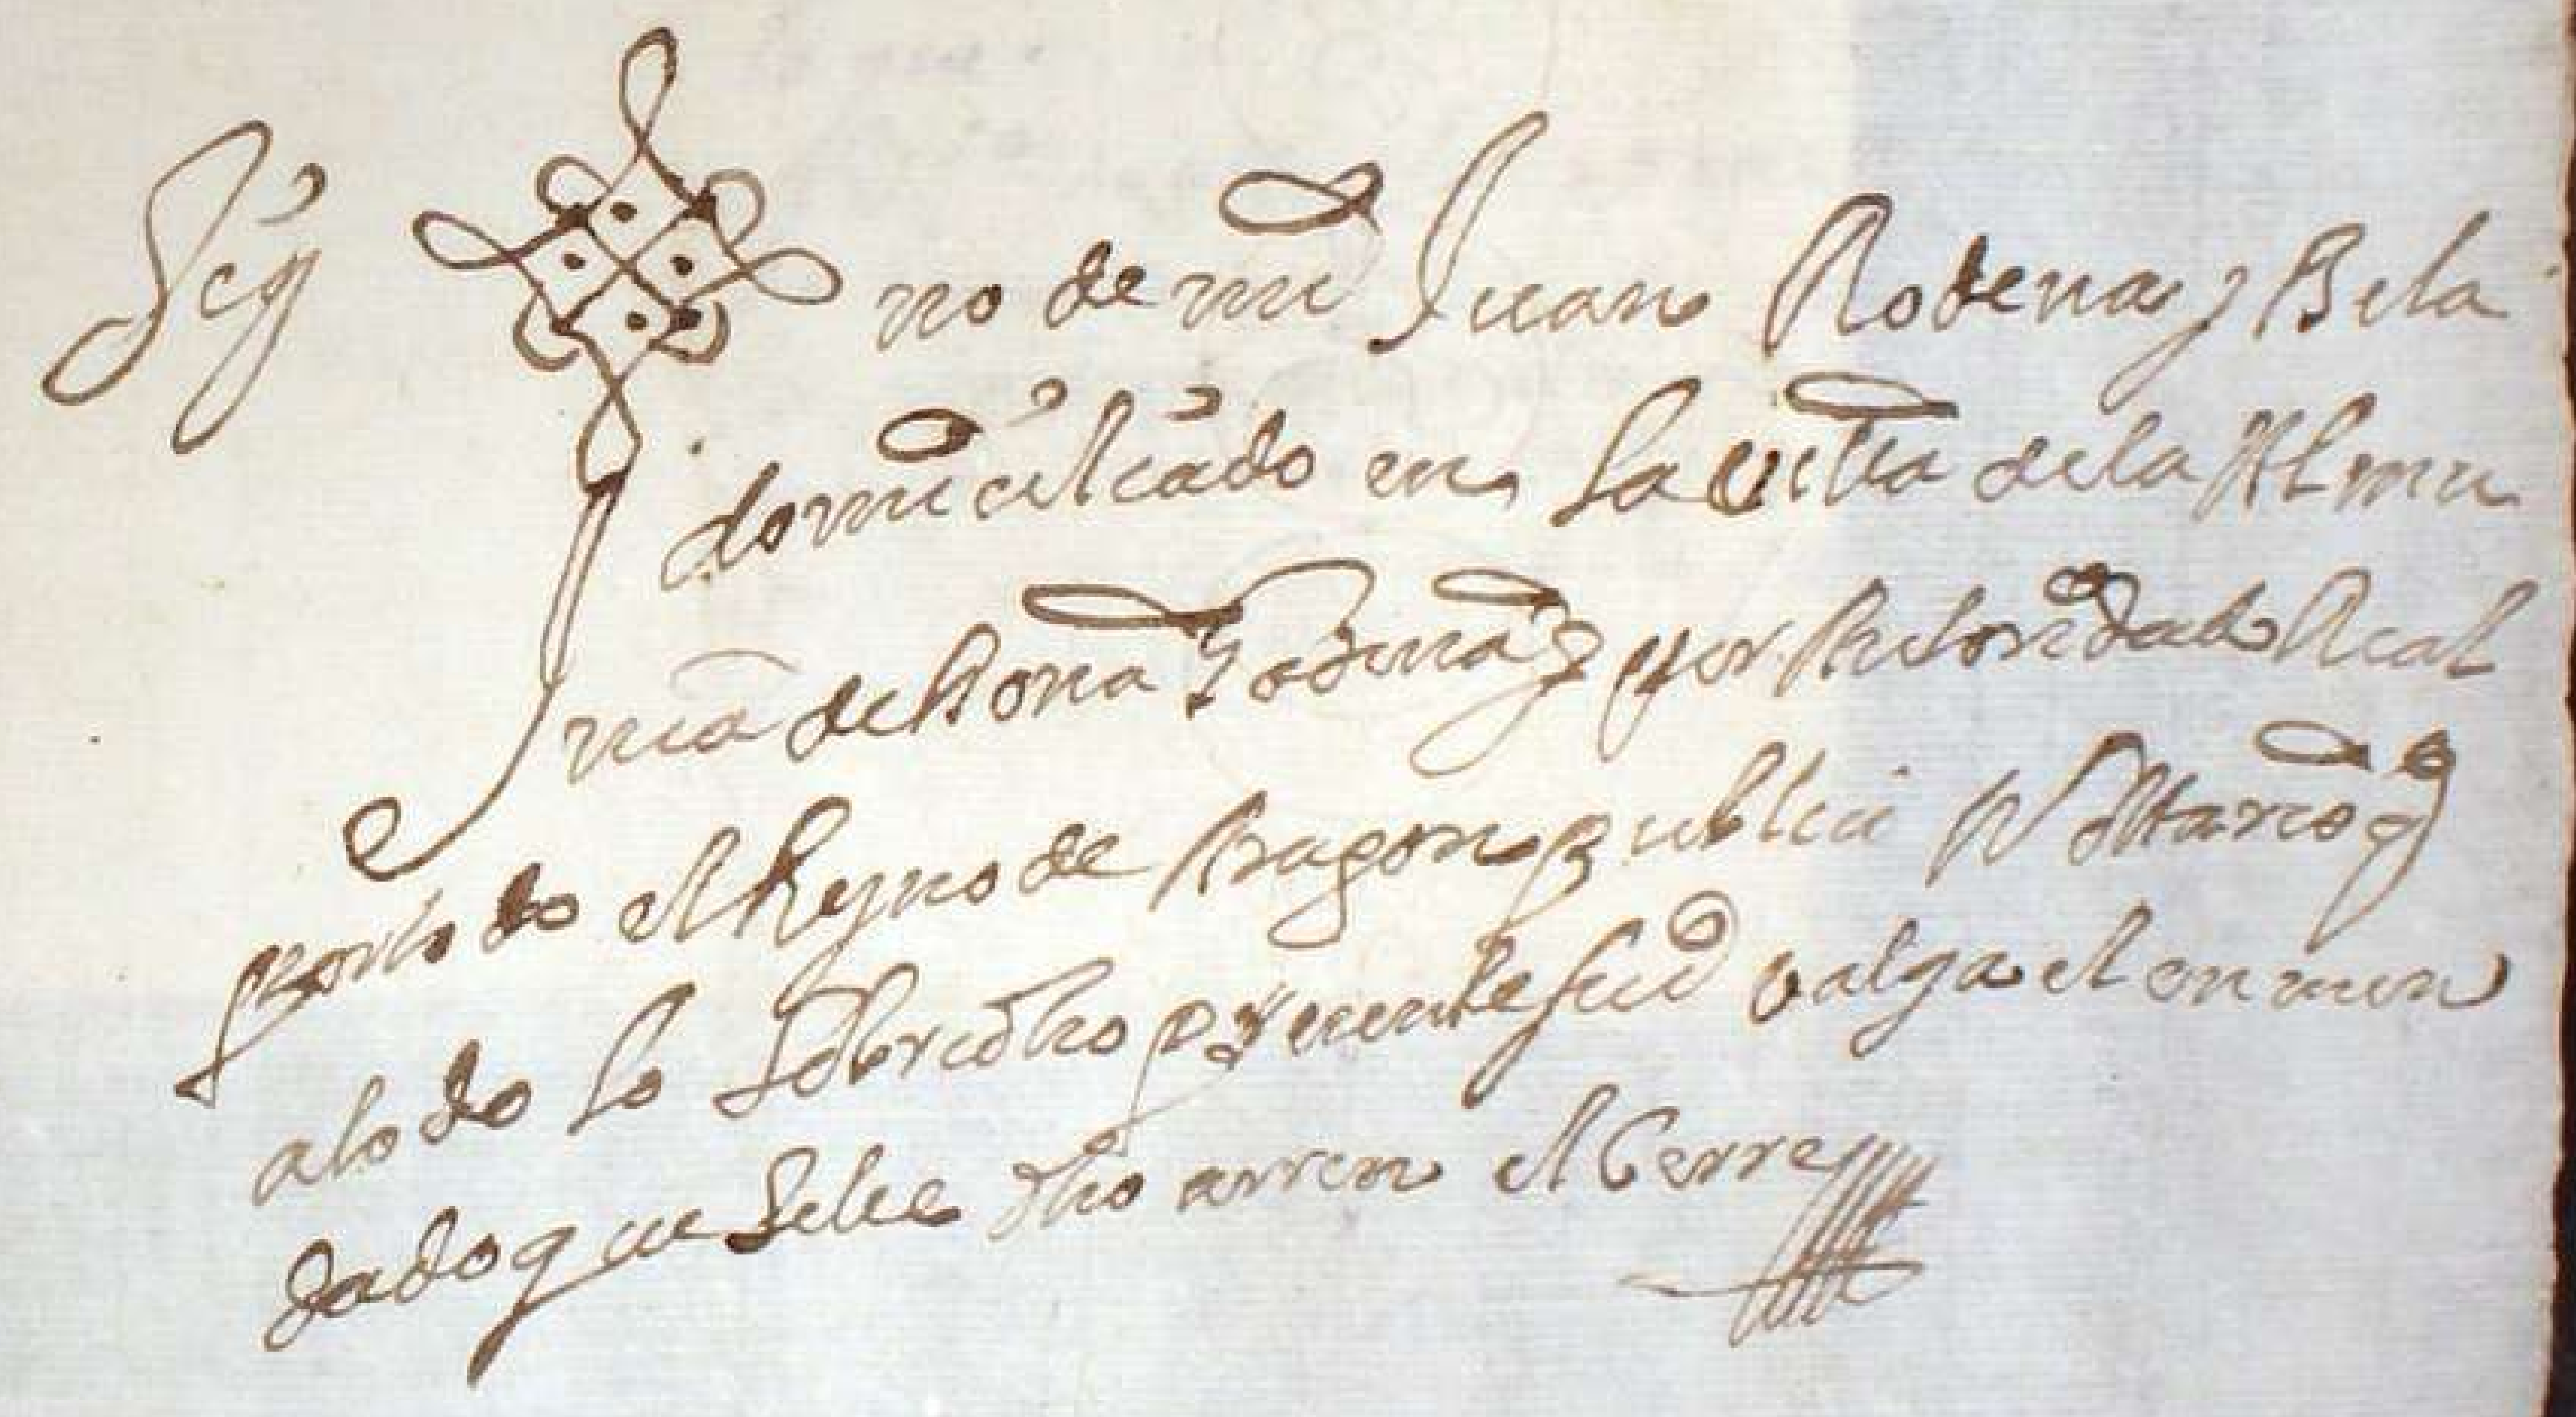 Sig no de mi Juan Rodenas y Bela
domiciliado en la villa de la Almu
nia de Doña Godina y por autoridad Real
por todo el Reyno de Aragon publico Nottario q
a todo lo sobredho presente fui valga el enmen
dado que se lee dho arren et Cerre